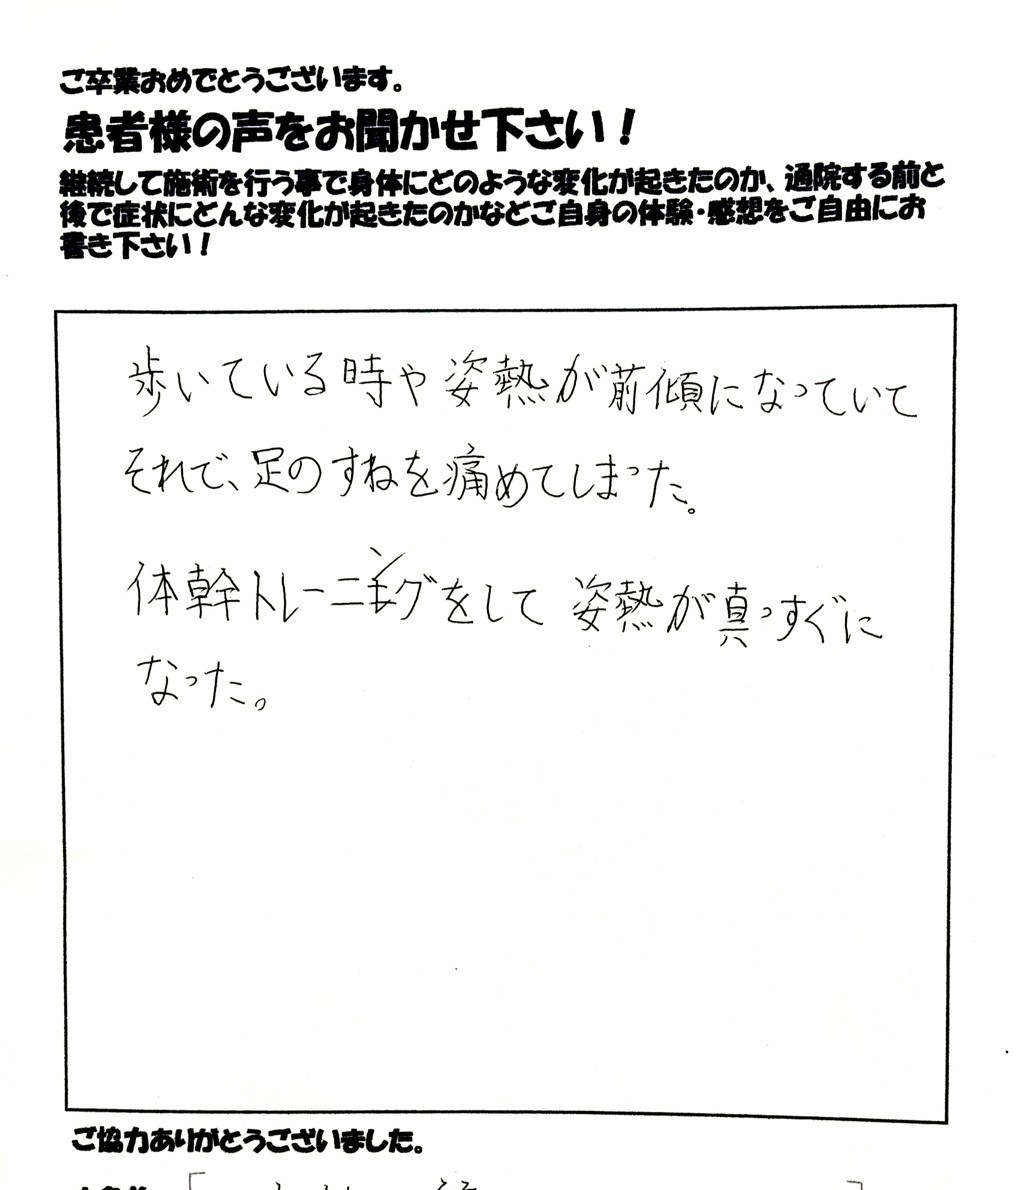 ご卒業おめでとうございます。
患者様の声をお聞かせ下さい！
継続して施術を行う事で身体にどのような変化が起きたのか、通院する前と
後で症状にどんな変化が起きたのかなどご自身の体験・感想をご自由にお
書き下さい！
歩いている時や姿熱が前傾になっていて
それで、足のすねを痛めてしまった。
体幹トレーニングをして 姿熱が真っすぐに
なった。
ご協力ありがとうございました。